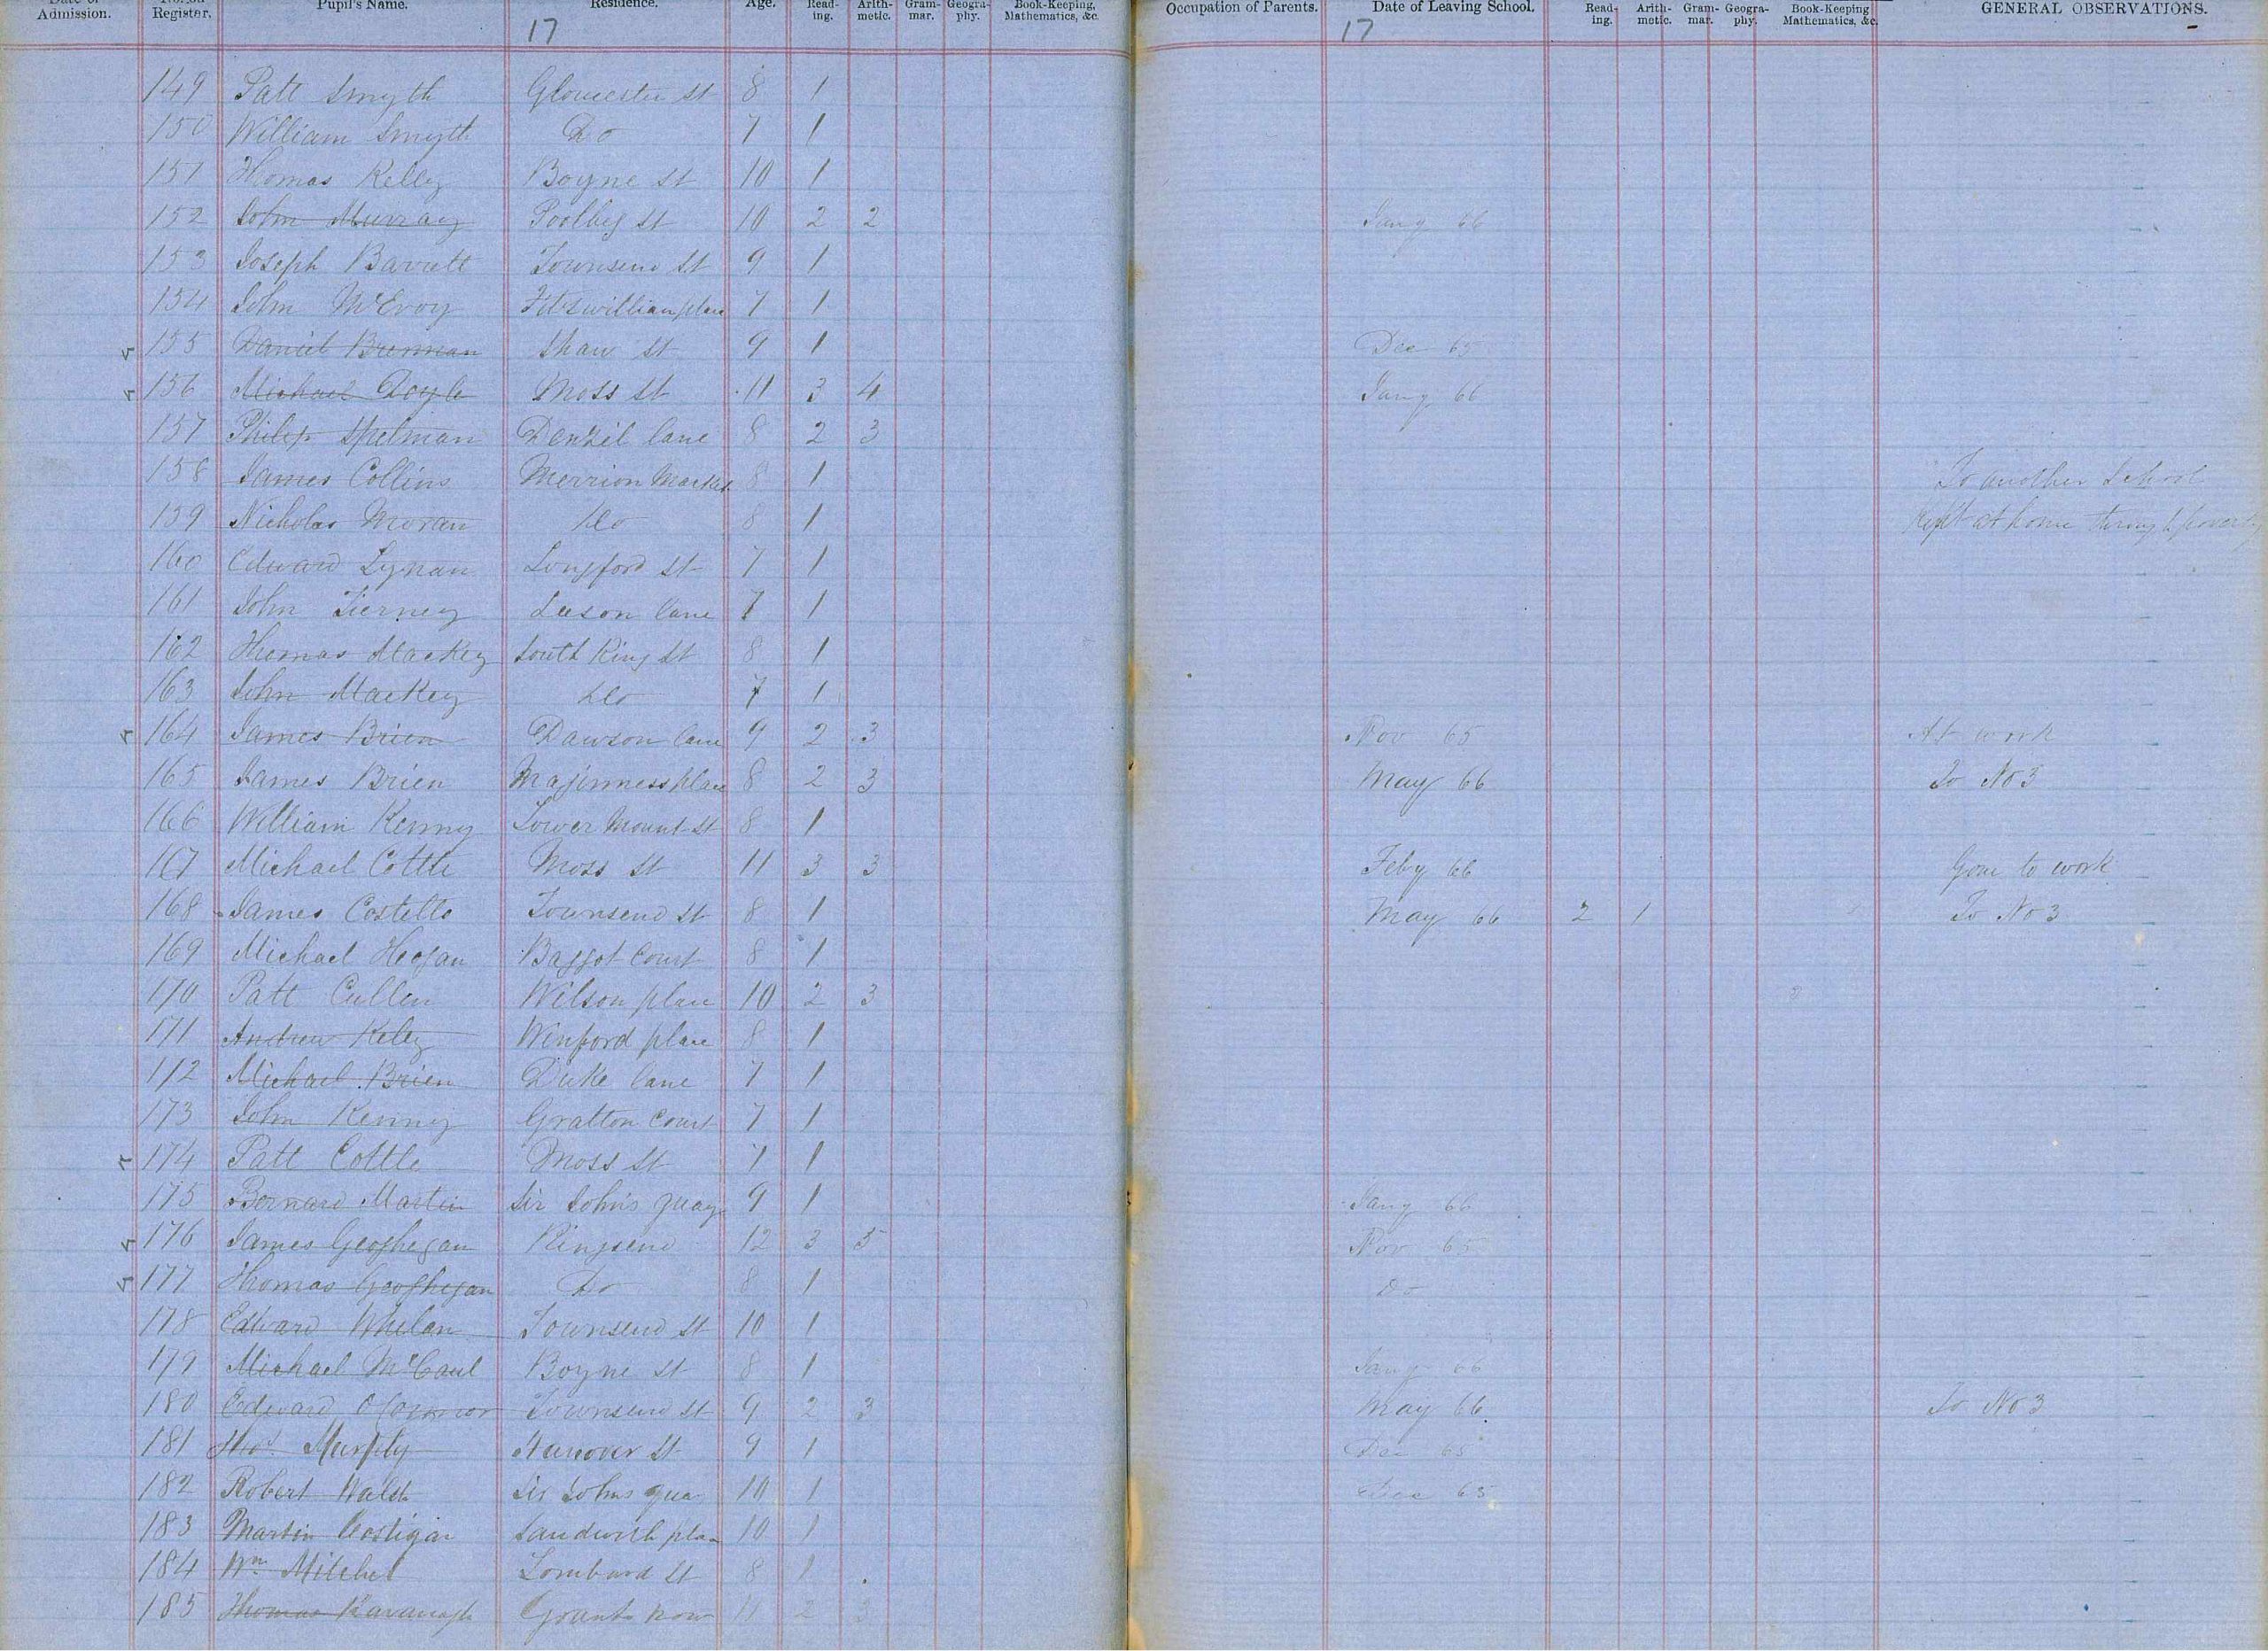 Date of Admission. No. on Register. Pupil's Name. Residence. Age. Read-ing. Arith-metic. Gram-mar. Geogra-phy. Book-Keeping, Mathematics, &c. Occupation of Parents. Date of Leaving School. Read-ing. Arith-metic. Gram-mar. Geogra-phy. Book-Keeping Mathematics, &c. GENERAL OBSERVATIONS.
17 17
149 Patt Smyth Gloucester St 8 1
150 William Smyth Do 7 1
151 Thomas Kelly Boyne St 10 1
152 John Murray Poolbeg St 10 2 2 Jany 66
153 Joseph Barrett Townsend St 9 1
154 John McEvoy Fitzwilliam place 7 1
155 Daniel Brennan Shaw St 9 1 Dec 65
156 Michael Doyle Moss St 11 3 4 Jany 66
157 Philip Spelman Denzil lane 8 2 3
158 James Collins Merrion Market 8 1 To another School
159 Nicholas Moran Do 8 1 Kept at home through poverty
160 Edward Lynan Longford St 7 1
161 John Tierney Leeson lane 7 1
162 Thomas Mackey South King St 8 1
163 John Mackey Do 7 1
164 James Brien Dawson lane 9 2 3 Nov 65 At work
165 James Brien Maginness place 8 2 3 May 66 To No 3
166 William Kenny Lower Mount St 8 1
167 Michael Cottle Moss St 11 3 3 Feby 66 Gone to work
168 James Costello Townsend St 8 1 May 66 2 1 To No 3
169 Michael Heogan Baggot Court 8 1
170 Patt Cullen Wilson place 10 2 3
171 Andrew Kely Winford place 8 1
172 Michael Brien Duke lane 7 1
173 John Kenny Gratton Court 7 1
174 Patt Cottle Moss St 7 1
175 Bernard Martin Sir John's quay 9 1 Jany 66
176 James Geoghegan Ringsend 12 3 5 Nov 65
177 Thomas Geoghegan Do 8 1 Do
178 Edward Whelan Townsend St 10 1
179 Michael McCaul Boyne St 8 1 Jany 66
180 Edward O Connor Townsend St 9 2 3 May 66 To No 3
181 Thos Murphy Hanover St 9 1 Dec 65
182 Robert Walsh Sir Johns qua 10 1 Dec 65
183 Martin Costigan Sandwith pla 10 1
184 Wm Mitchel Lombard St 8 1
185 Thomas Kavanagh Grants row 11 2 3